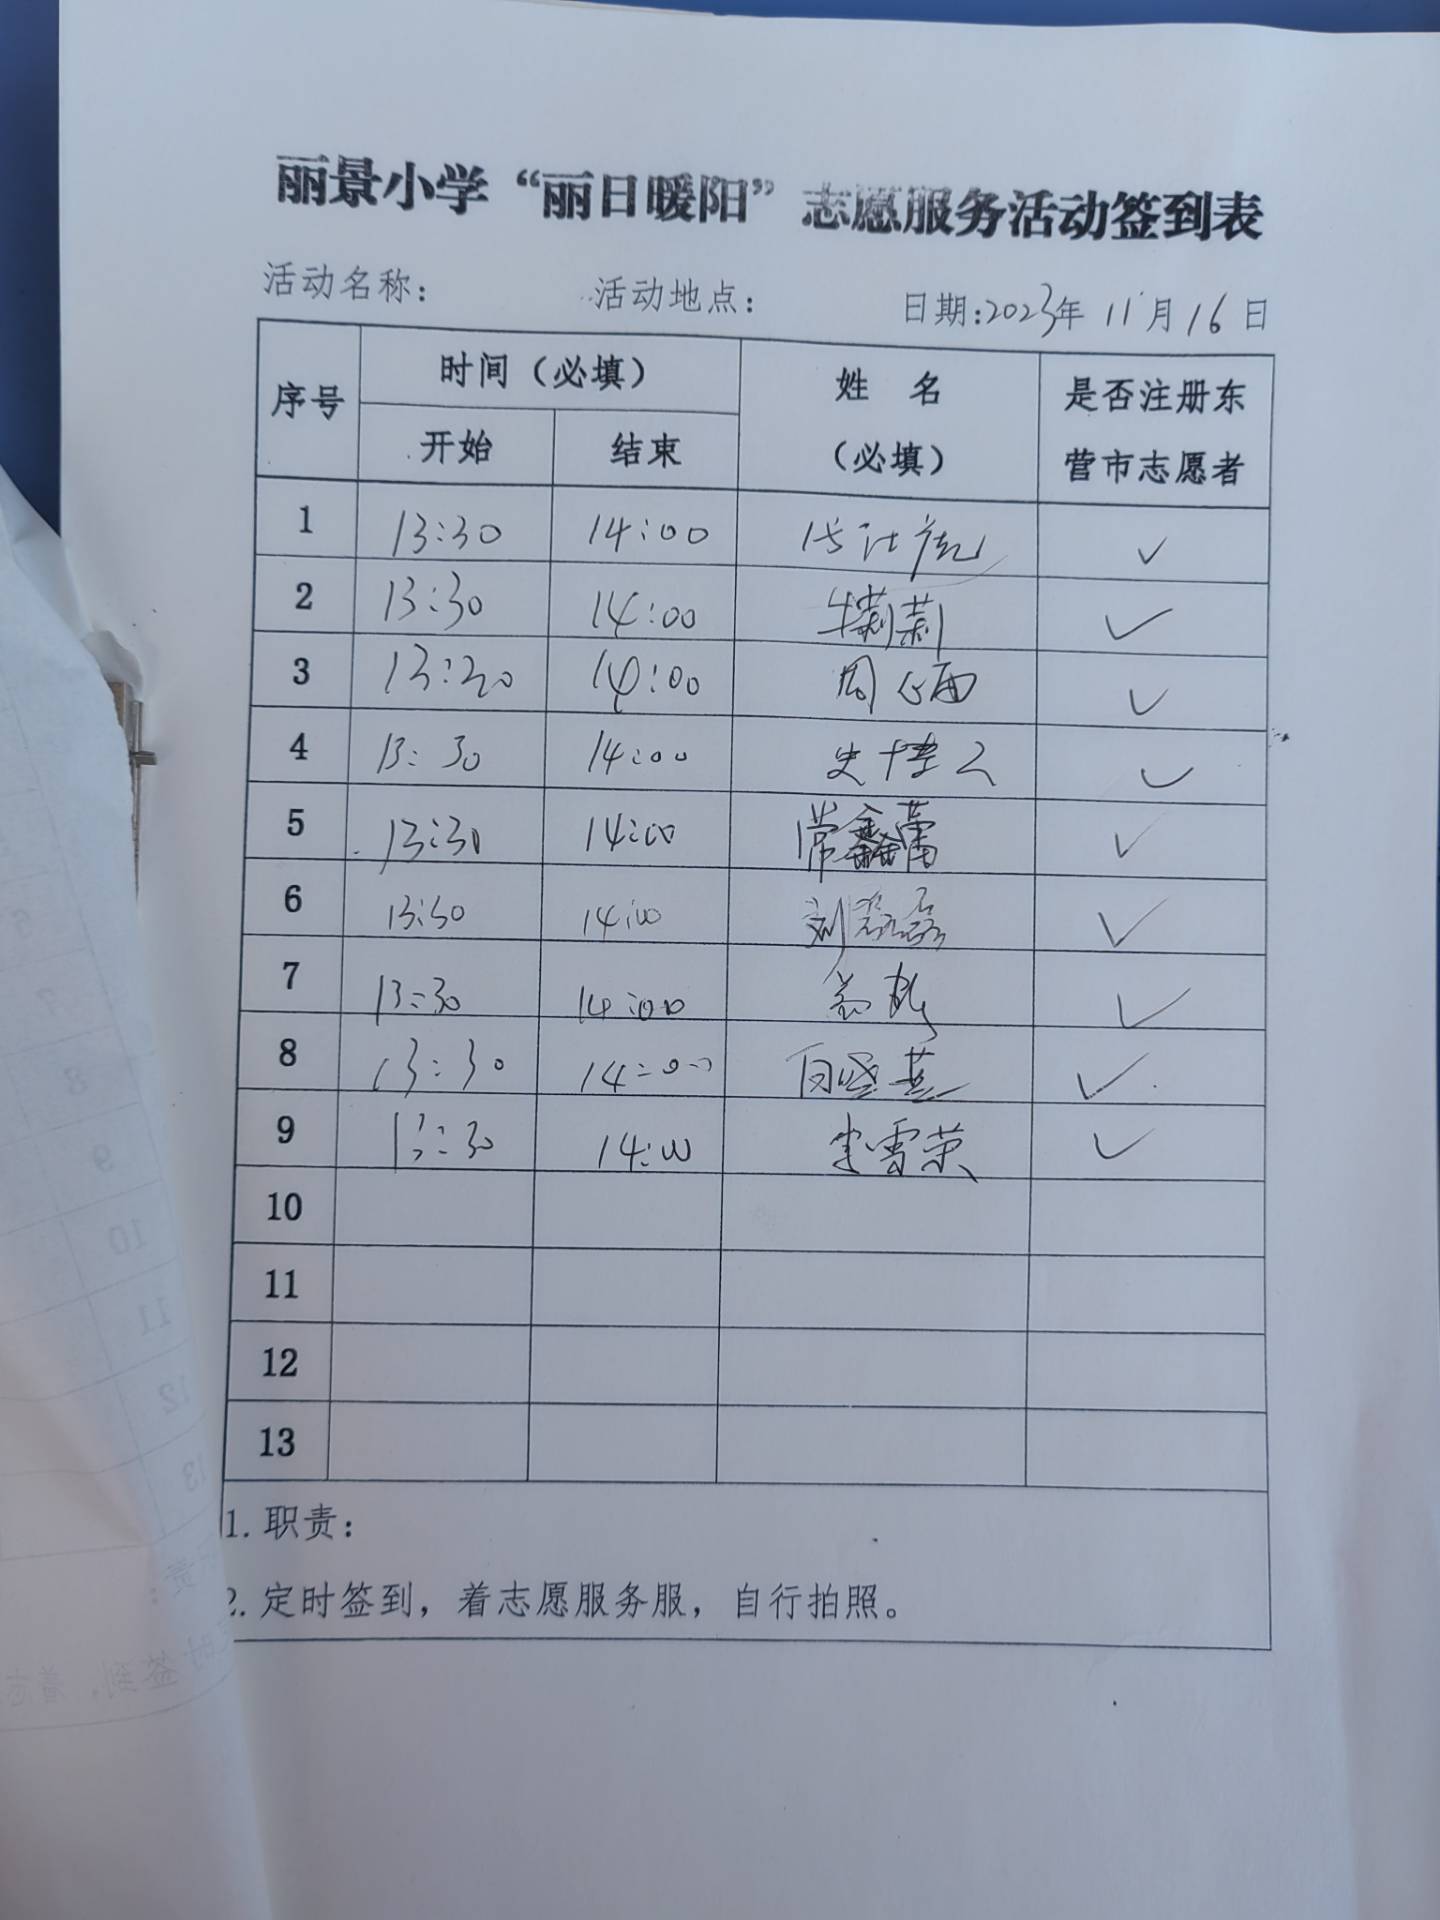 丽景小学“丽日暖阳”志愿服务活动签到表
活动名称： 活动地点： 日期:2023年 11月16日
序号 时间（必填） 姓 名（必填） 是否注册东营市志愿者
开始 结束
1 13:30 14:00 ✓
2 13:30 14:00 牛莉莉 ✓
3 13:30 14:00 周 ✓
4 13:30 14:00 史博文 ✓
5 13:30 14:00 常鑫蕾 ✓
6 13:30 14:00 刘磊磊 ✓
7 13:30 14:00 ✓
8 13:30 14:00 ✓
9 13:30 14:00 李雪荣 ✓
10
11
12
13
1. 职责：
2. 定时签到，着志愿服务服，自行拍照。